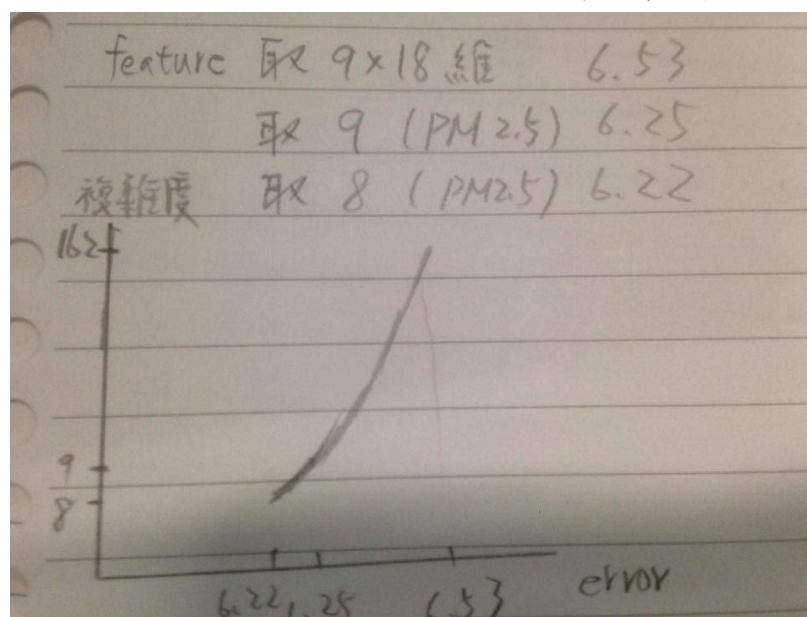 feature 取 9×18維 6.53
取 9 (PM2.5) 6.25
複雜度 取 8 (PM2.5) 6.22
162
9
8
6.22 6.25 6.53 error